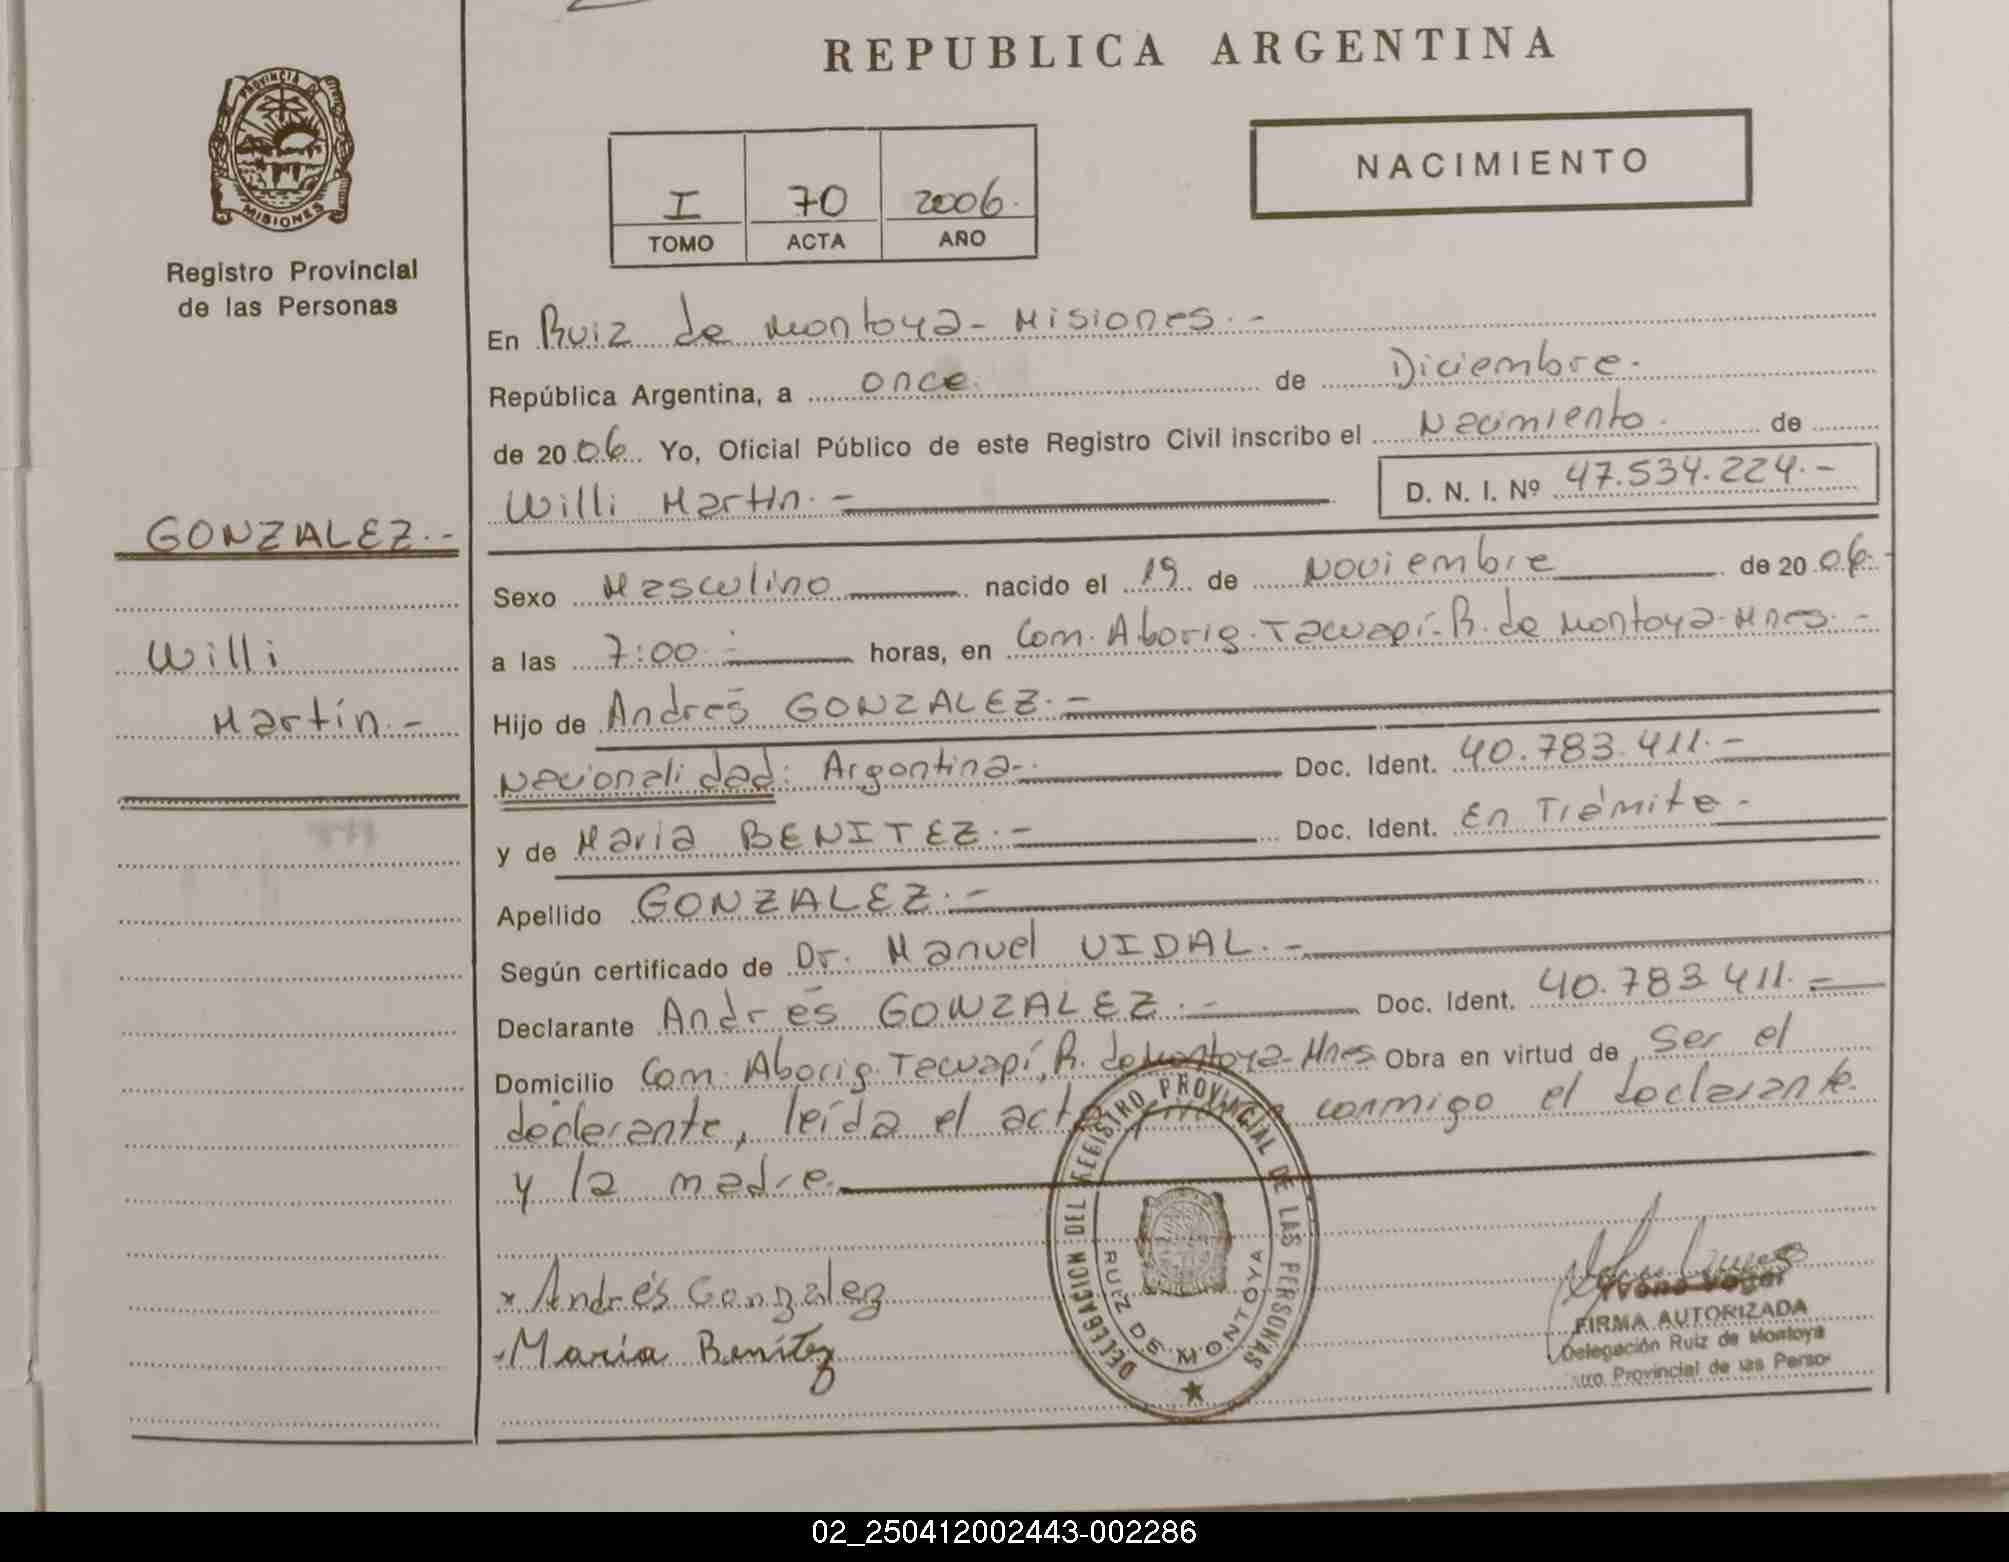 REPUBLICA ARGENTINA
PROVINCIA DE
MISIONES
Registro Provincial
de las Personas
I 70 2006.
TOMO ACTA AÑO
NACIMIENTO
En Ruiz de Montoya - Misiones. -
República Argentina, a once. de Diciembre.
de 20 06. Yo, Oficial Público de este Registro Civil inscribo el Nacimiento. de
Willi Martín. - D. N. I. Nº 47.534.224. -
GONZALEZ. -
Willi
Martín. -
Sexo Masculino nacido el 19 de Noviembre de 20 06. -
a las 7:00. - horas, en Com. Aborig. Tacuapí - R. de Montoya - Mnes. -
Hijo de Andrés GONZALEZ. -
Nacionalidad: Argentina. Doc. Ident. 40.783.411. -
y de Maria BENITEZ. - Doc. Ident. En Trámite -
Apellido GONZALEZ. -
Según certificado de Dr. Manuel VIDAL. -
Declarante Andrés GONZALEZ. - Doc. Ident. 40.783.411. -
Domicilio Com. Aborig. Tacuapí, R. de Montoya - Mnes Obra en virtud de, ser el
declarante, leída el acta firman conmigo el declarante
y la madre.
x Andrés Gonzalez
Maria Benítez
DELEGACION DEL REGISTRO PROVINCIAL DE LAS PERSONAS
RUIZ DE MONTOYA
FIRMA AUTORIZADA
Delegación Ruiz de Montoya
Provincial de las Perso
02_250412002443-002286